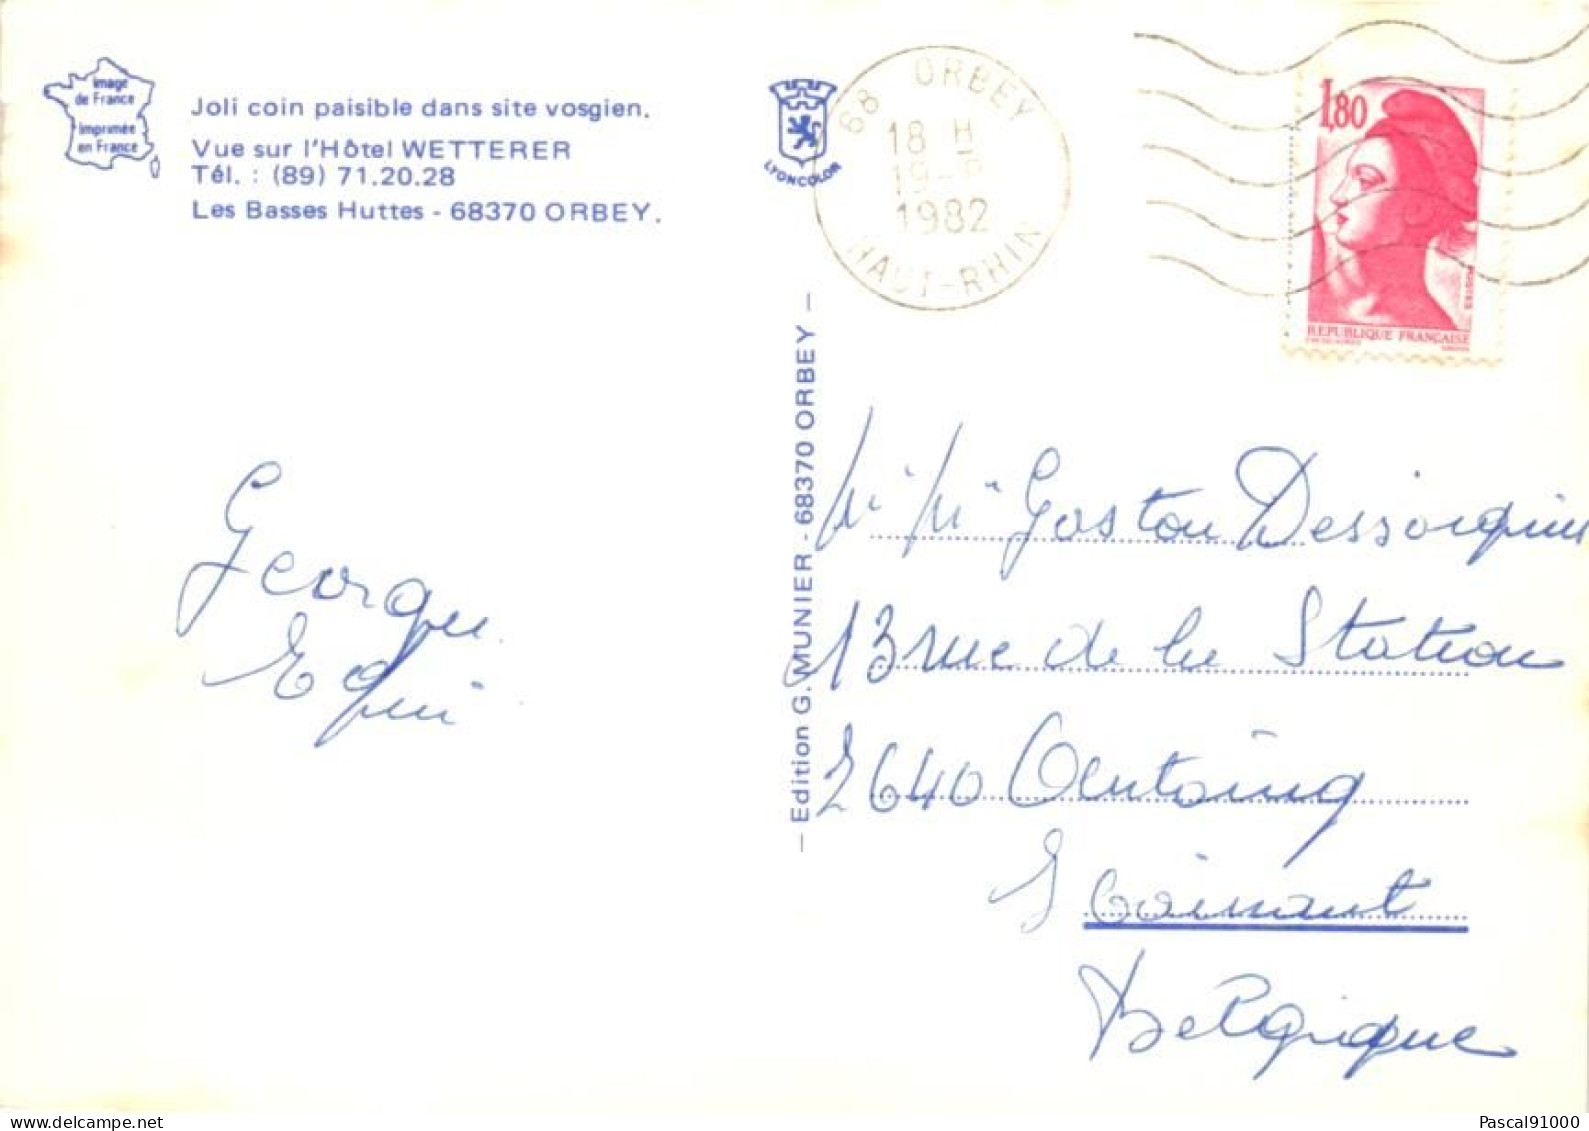 image
de France
Imprimée
en France
Joli coin paisible dans site vosgien.
Vue sur l'Hôtel WETTERER
Tél. : (89) 71.20.28
Les Basses Huttes - 68370 ORBEY.
LYONCOLOR
68 ORBEY
18 H
19-
1982
HAUT-RHIN
1,80
REPUBLIQUE FRANÇAISE
— Edition G. MUNIER - 68370 ORBEY —
Georges
Gaston
13 rue de la Station
Belgique
Pascal91000